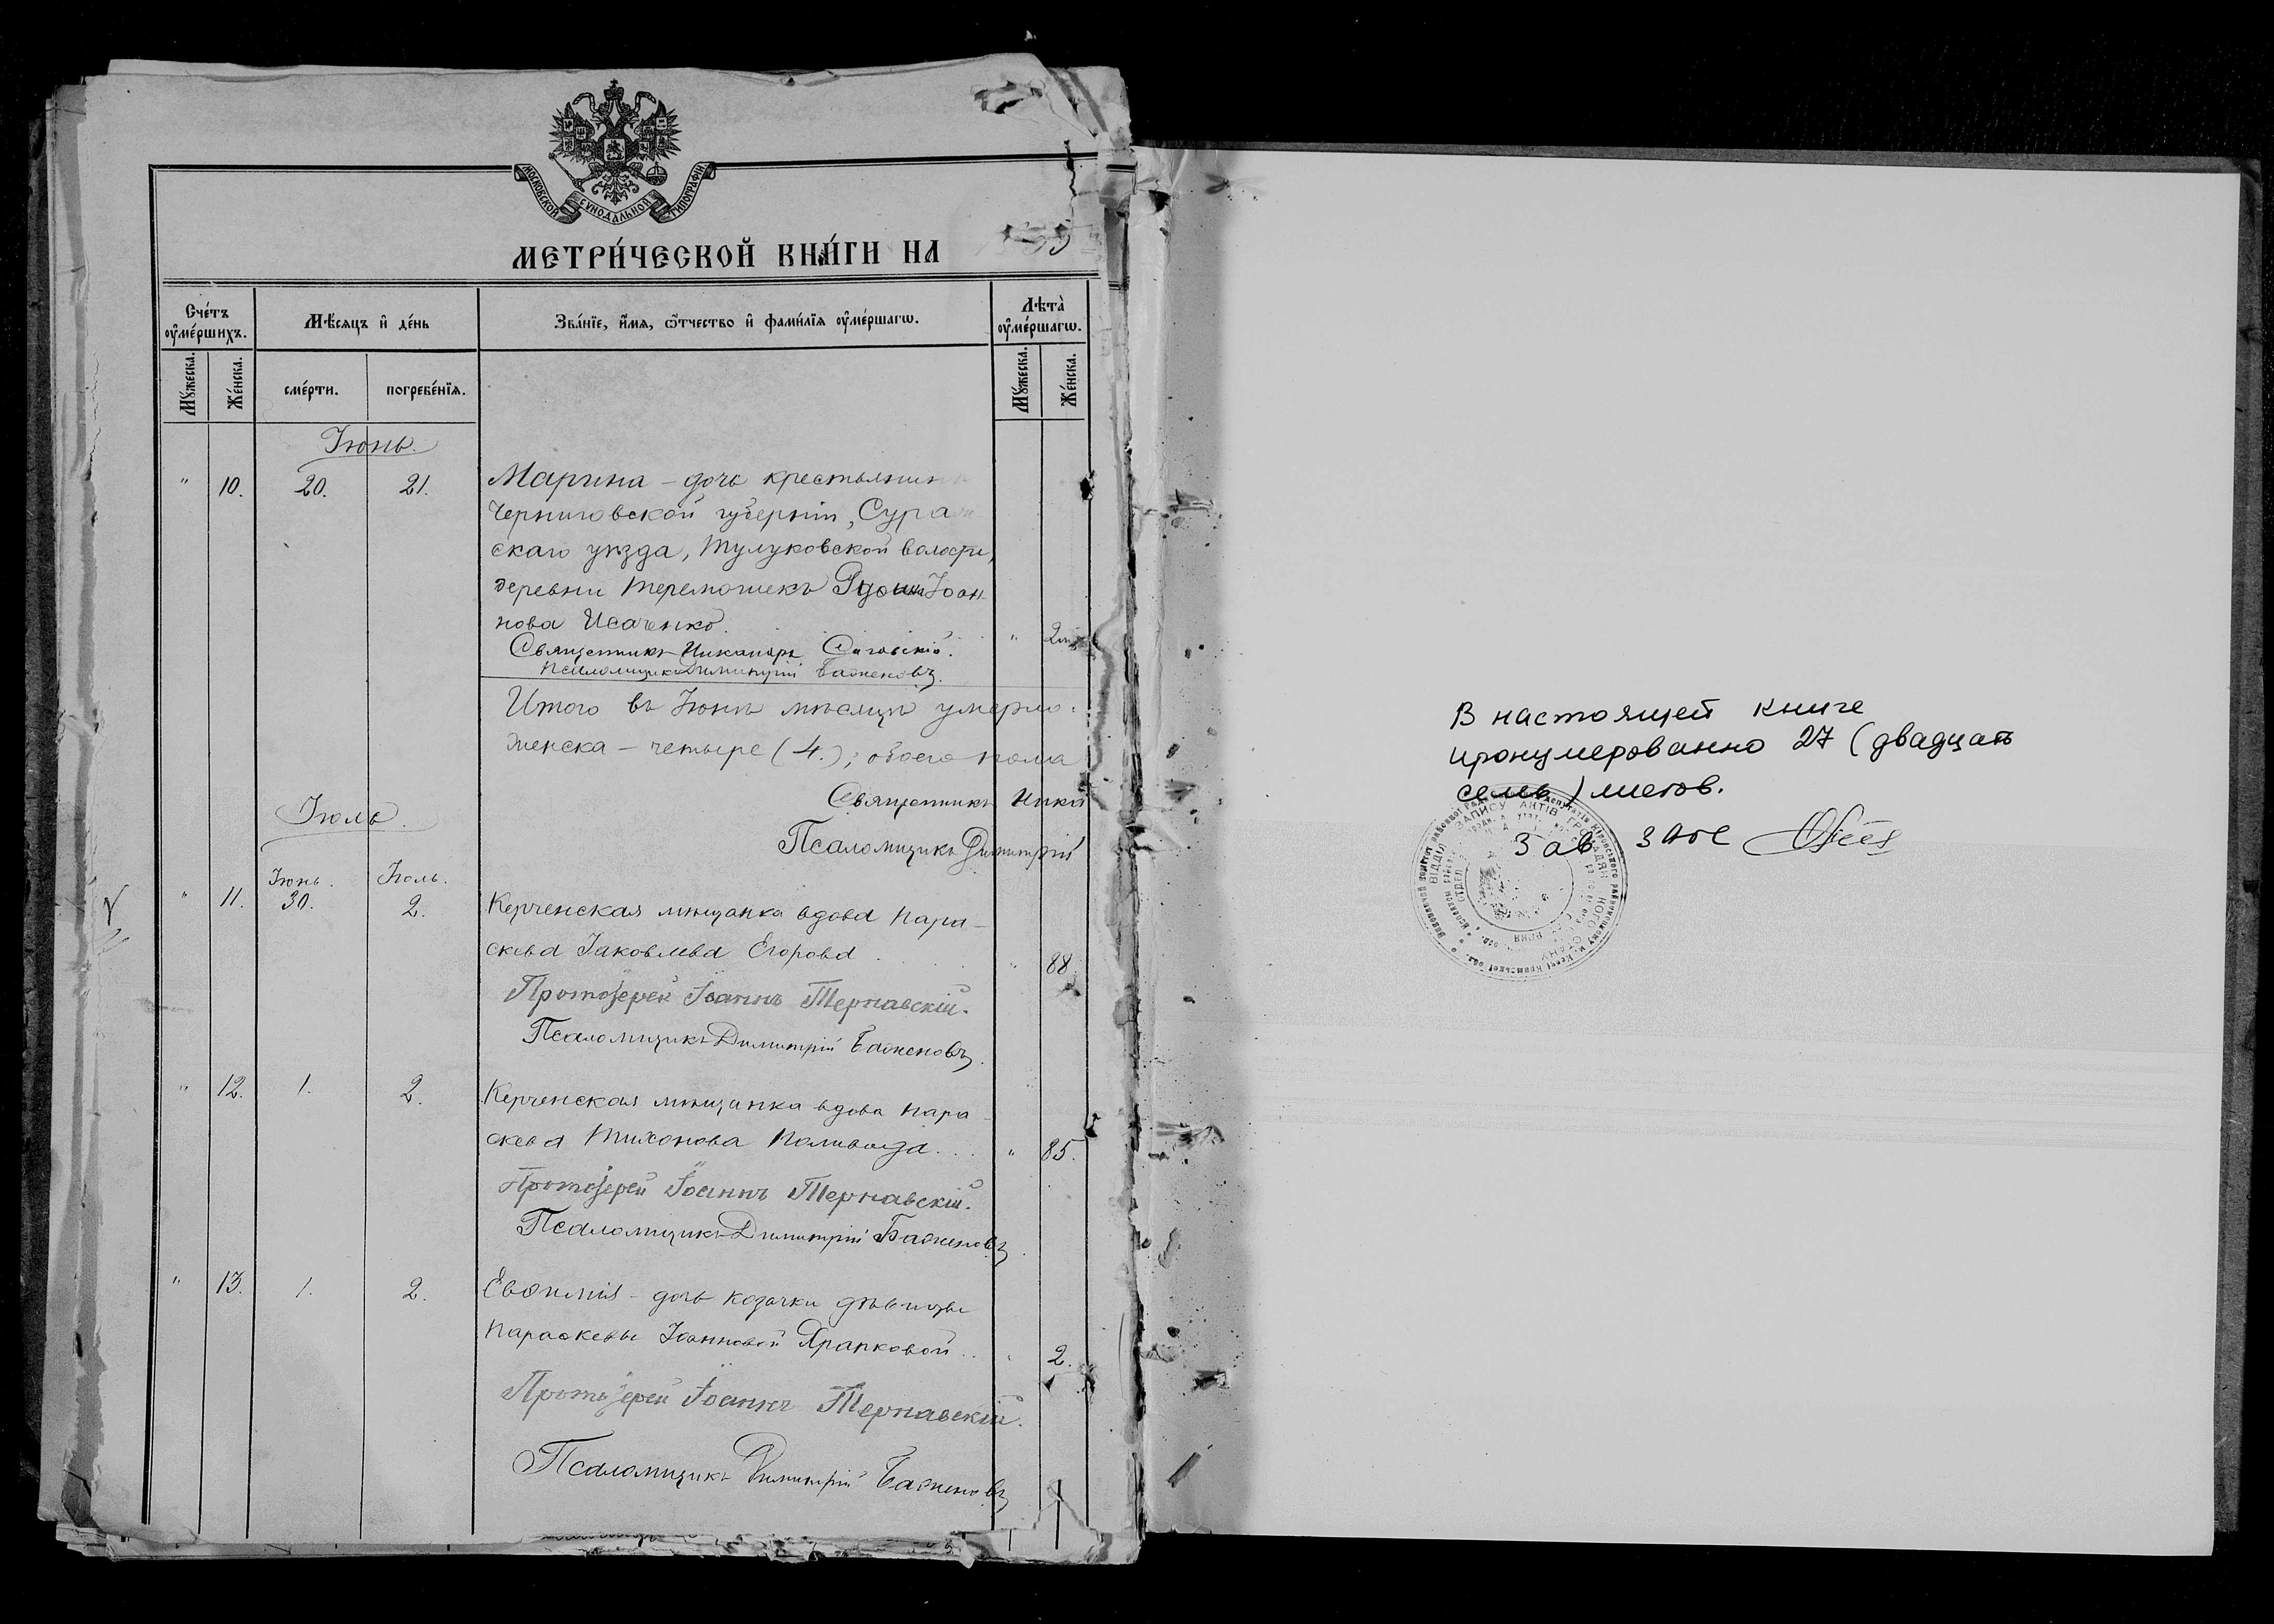 МОСКОВСКОЙ СУНОДАЛЬНОЙ ТИПОГРАФІИ
МЕТРИ́ЧЕСКОЙ КНИ́ГИ НА
Сче́тъ оумершихъ.
Мѣ́сяцъ и де́нь
Зва́нїе, и́мя, ѻ́тчество и фами́лїя оуме́ршагѡ.
Лѣта̀ оуме́ршагѡ.
Мꙋ́жеска.
Же́нска.
сме́рти.
погребе́нїя.
Мꙋ́жеска.
Же́нска.
Іюнь.
" 10. 20. 21. Марина – дочь крестьянин
Черниговской губерніи, Сура
скаго уѣзда, Тулуковской волости,
деревни Іоан-
нова Исаченко. "
Священникъ Никаноръ
Псаломщикъ Димитрій Баженовъ.
Итого въ Іюнѣ мѣсяцѣ умерло:
женска – четыре (4.); обоего пола
Священникъ Ника
Псаломщикъ Димитрій
Іюль.
Іюнь. Іюль.
" 11. 30. 2. Керченская мѣщанка вдова Пара-
скева Іаковлева Егорова . . . " 88.
Протоіерей Іоаннъ Тернавскій.
Псаломщикъ Димитрій Баженовъ.
" 12. 1. 2. Керченская мѣщанка вдова Пара-
скева Тихонова . . . " 85.
Протоіерей Іоаннъ Тернавскій.
Псаломщикъ Димитрій Баженовъ.
" 13. 1. 2. Евѳимія – дочь козачки дѣвицы
Параскевы Іоанновой . . " 2.
Протоіерей Іоаннъ Тернавскій.
Псаломщикъ Димитрій Баженовъ
В настоящей книге
пронумерованно 27 (двадцать
семь) листов.
Зав ЗАГС
ВІДДІЛ ЗАПИСУ АКТІВ ГРОМАДЯНСЬКОГО СТАНУ